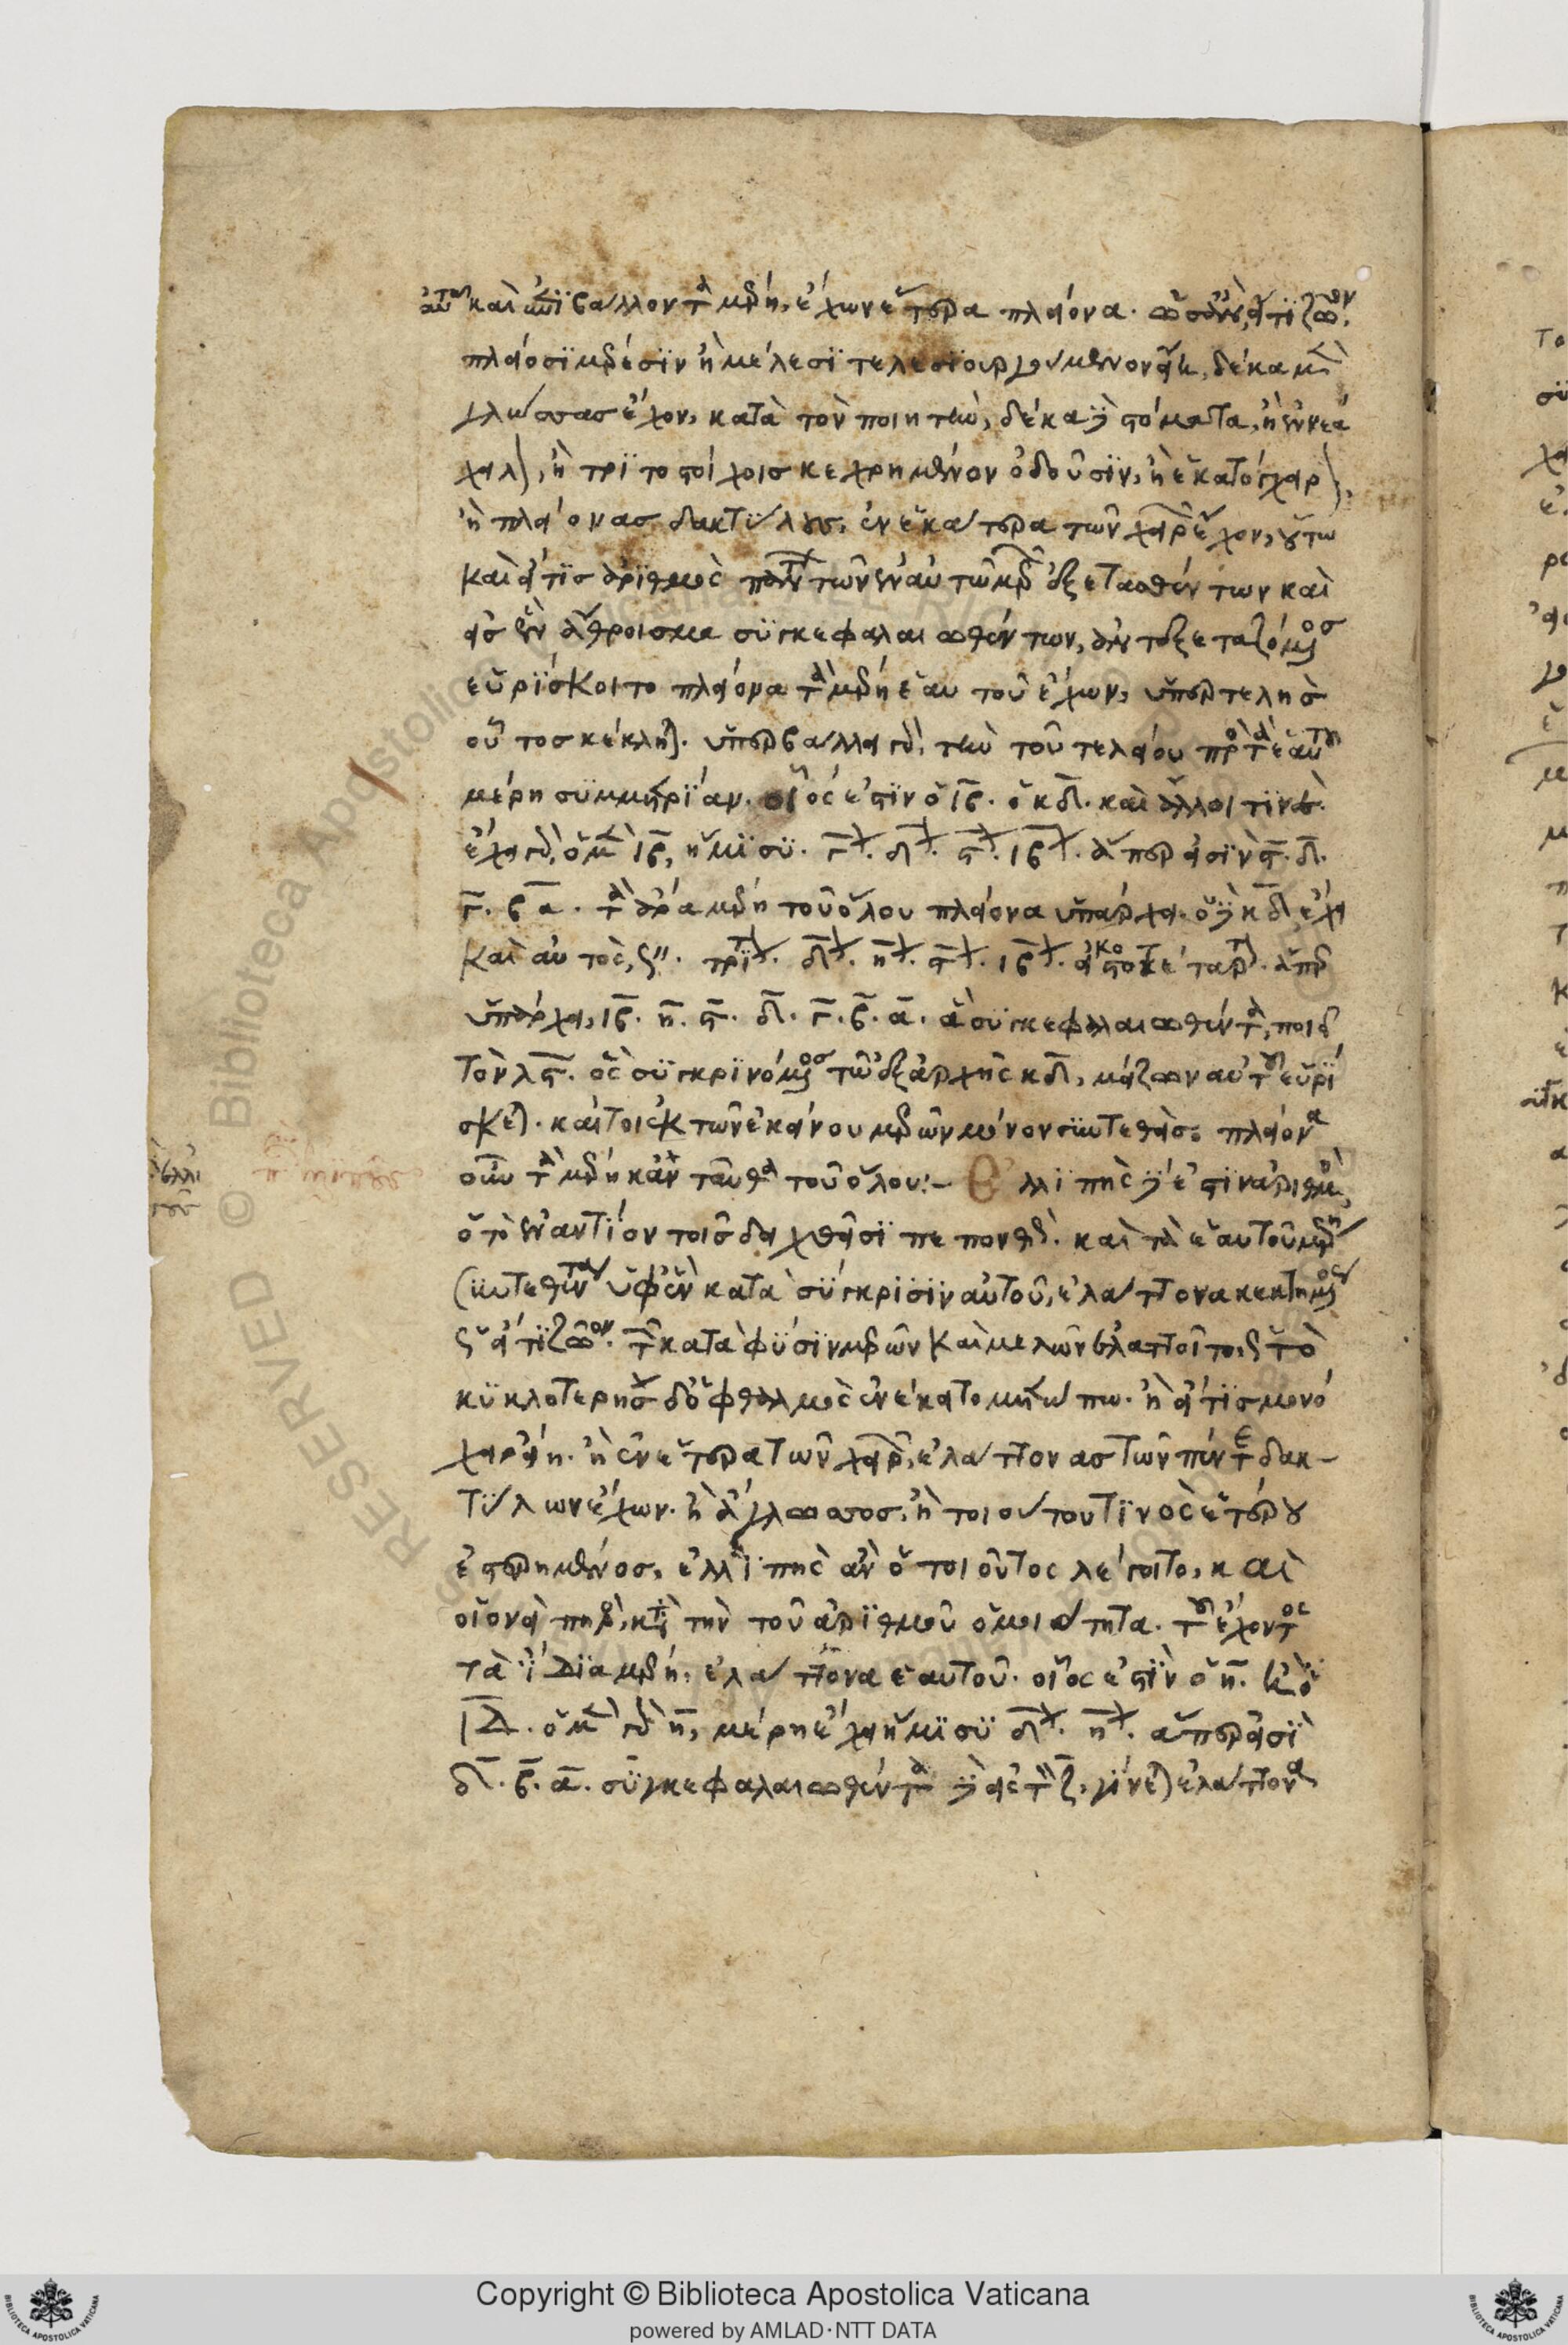 αὐτῶ καὶ ἐπιβάλλοντα μέρη, ἔχων ἕτερα πλείονα. ὡσανεὶ εἴ τι ζῶον
πλείοσι μέρεσιν ἢ μέλεσι τελεσιουργούμενον εἴη, δέκα μὲν
γλώσσας ἔχον, κατὰ τὸν ποιητὴν, δέκα δὲ στόματα, ἢ ἐννεά
χειλον, ἢ τριτοστοίχοις κεχρημένον ὀδοῦσιν, ἢ ἑκατόγχειρον,
ἢ πλείονας δακτύλους, ἐν ἑκάτερα τῶν χειρῶν ἔχον, οὕτω
καὶ εἴ τις ἀριθμὸς πάντων τῶν ἐν αὐτῶ μερῶν ἐξετασθέντων καὶ
εἰς ἓν ἄθροισμα συγκεφαλαιωθέντων, ἀντεξεταζόμενος
εὑρίσκοιτο πλείονα τὰ μέρη ἑαυτοῦ ἔχων, ὑπερτελὴς
οὗτος κέκληται. ὑπερβάλλει γὰρ, τὴν τοῦ τελείου πρὸς τὰ ἑαυτοῦ
μέρη συμμετρίαν. οἷός ἐστιν ὁ ιβ. ὁ κδ. καὶ ἄλλοι τινές.
ἔχει γὰρ, ὁ μὲν ιβ, ἥμισυ. γον. δον. ϛον. ιβον. ἅπερ εἰσὶν ϛ. δ.
γ. β α. τὰ ἄρα μέρη τοῦ ὅλου πλείονα ὑπάρχει. ὁ δὲ κδ, ἔχει
καὶ αὐτὸς, ϛ''. τρίτον. δον. ηον. ϛον. ιβον. εἰκοστοτέταρτον. ἅπερ
ὑπάρχει, ιβ. η. ϛ. δ. γ. β. α. ἃ συγκεφαλαιωθέντα, ποιεῖ
τὸν λϛ. ὃς συγκρινόμενος τῶ ἐξ ἀρχῆς κδ, μείζων αὐτοῦ εὑρί
σκεται. καίτοι ἐκ τῶν ἐκείνου μερῶν μόνον συντεθείς. πλείονα
οὖν τὰ μέρη κἀνταῦθα τοῦ ὅλου:– Ἐλλιπὴς δέ ἐστιν ἀριθμὸς,
ὁ τὸ ἐναντίον τοῖς δειχθεῖσι πεπονθώς. καὶ τὰ ἑαυτοῦ μέρη
συντεθέντα ὑφ' ἓν κατὰ σύγκρισιν αὐτοῦ, ἐλάττονα κεκτημένος
ὡς εἴ τι ζῶον. τῶν κατὰ φύσιν μερῶν καὶ μελῶν ἐλαττοῖτο, ὡς τὸ
κυκλοτερὴς δ' ὀφθαλμὸς ἐνέκειτο μετώπω. ἢ εἴ τις μονό
χειρ εἴη. ἢ ἐν ἑτέρα τῶν χειρῶν, ἐλάττονας τῶν πέντε δακ–
τύλων ἔχων. ἢ ἄγλωσσος, ἢ τοιούτου τινὸς ἑτέρου
ἐστερημένος, ἐλλιπὴς ἂν ὁ τοιοῦτος λέγοιτο, καὶ
οἱονεὶ πηρὸς, κατὰ τὴν τοῦ ἀριθμοῦ ὁμοιότητα. τοῦ ἔχοντος
τὰ ἴδια μέρη, ἐλάττονα ἑαυτοῦ. οἷός ἐστιν ὁ η. καὶ ὁ
ιδ. ὁ μὲν γὰρ η, μέρη ἔχει ἥμισυ δον. ηον. ἅπερ εἰσὶ
δ. β. α. συγκεφαλαιωθέντα δὲ εἰς τὸν ζ, γίνεται ἐλάττονα